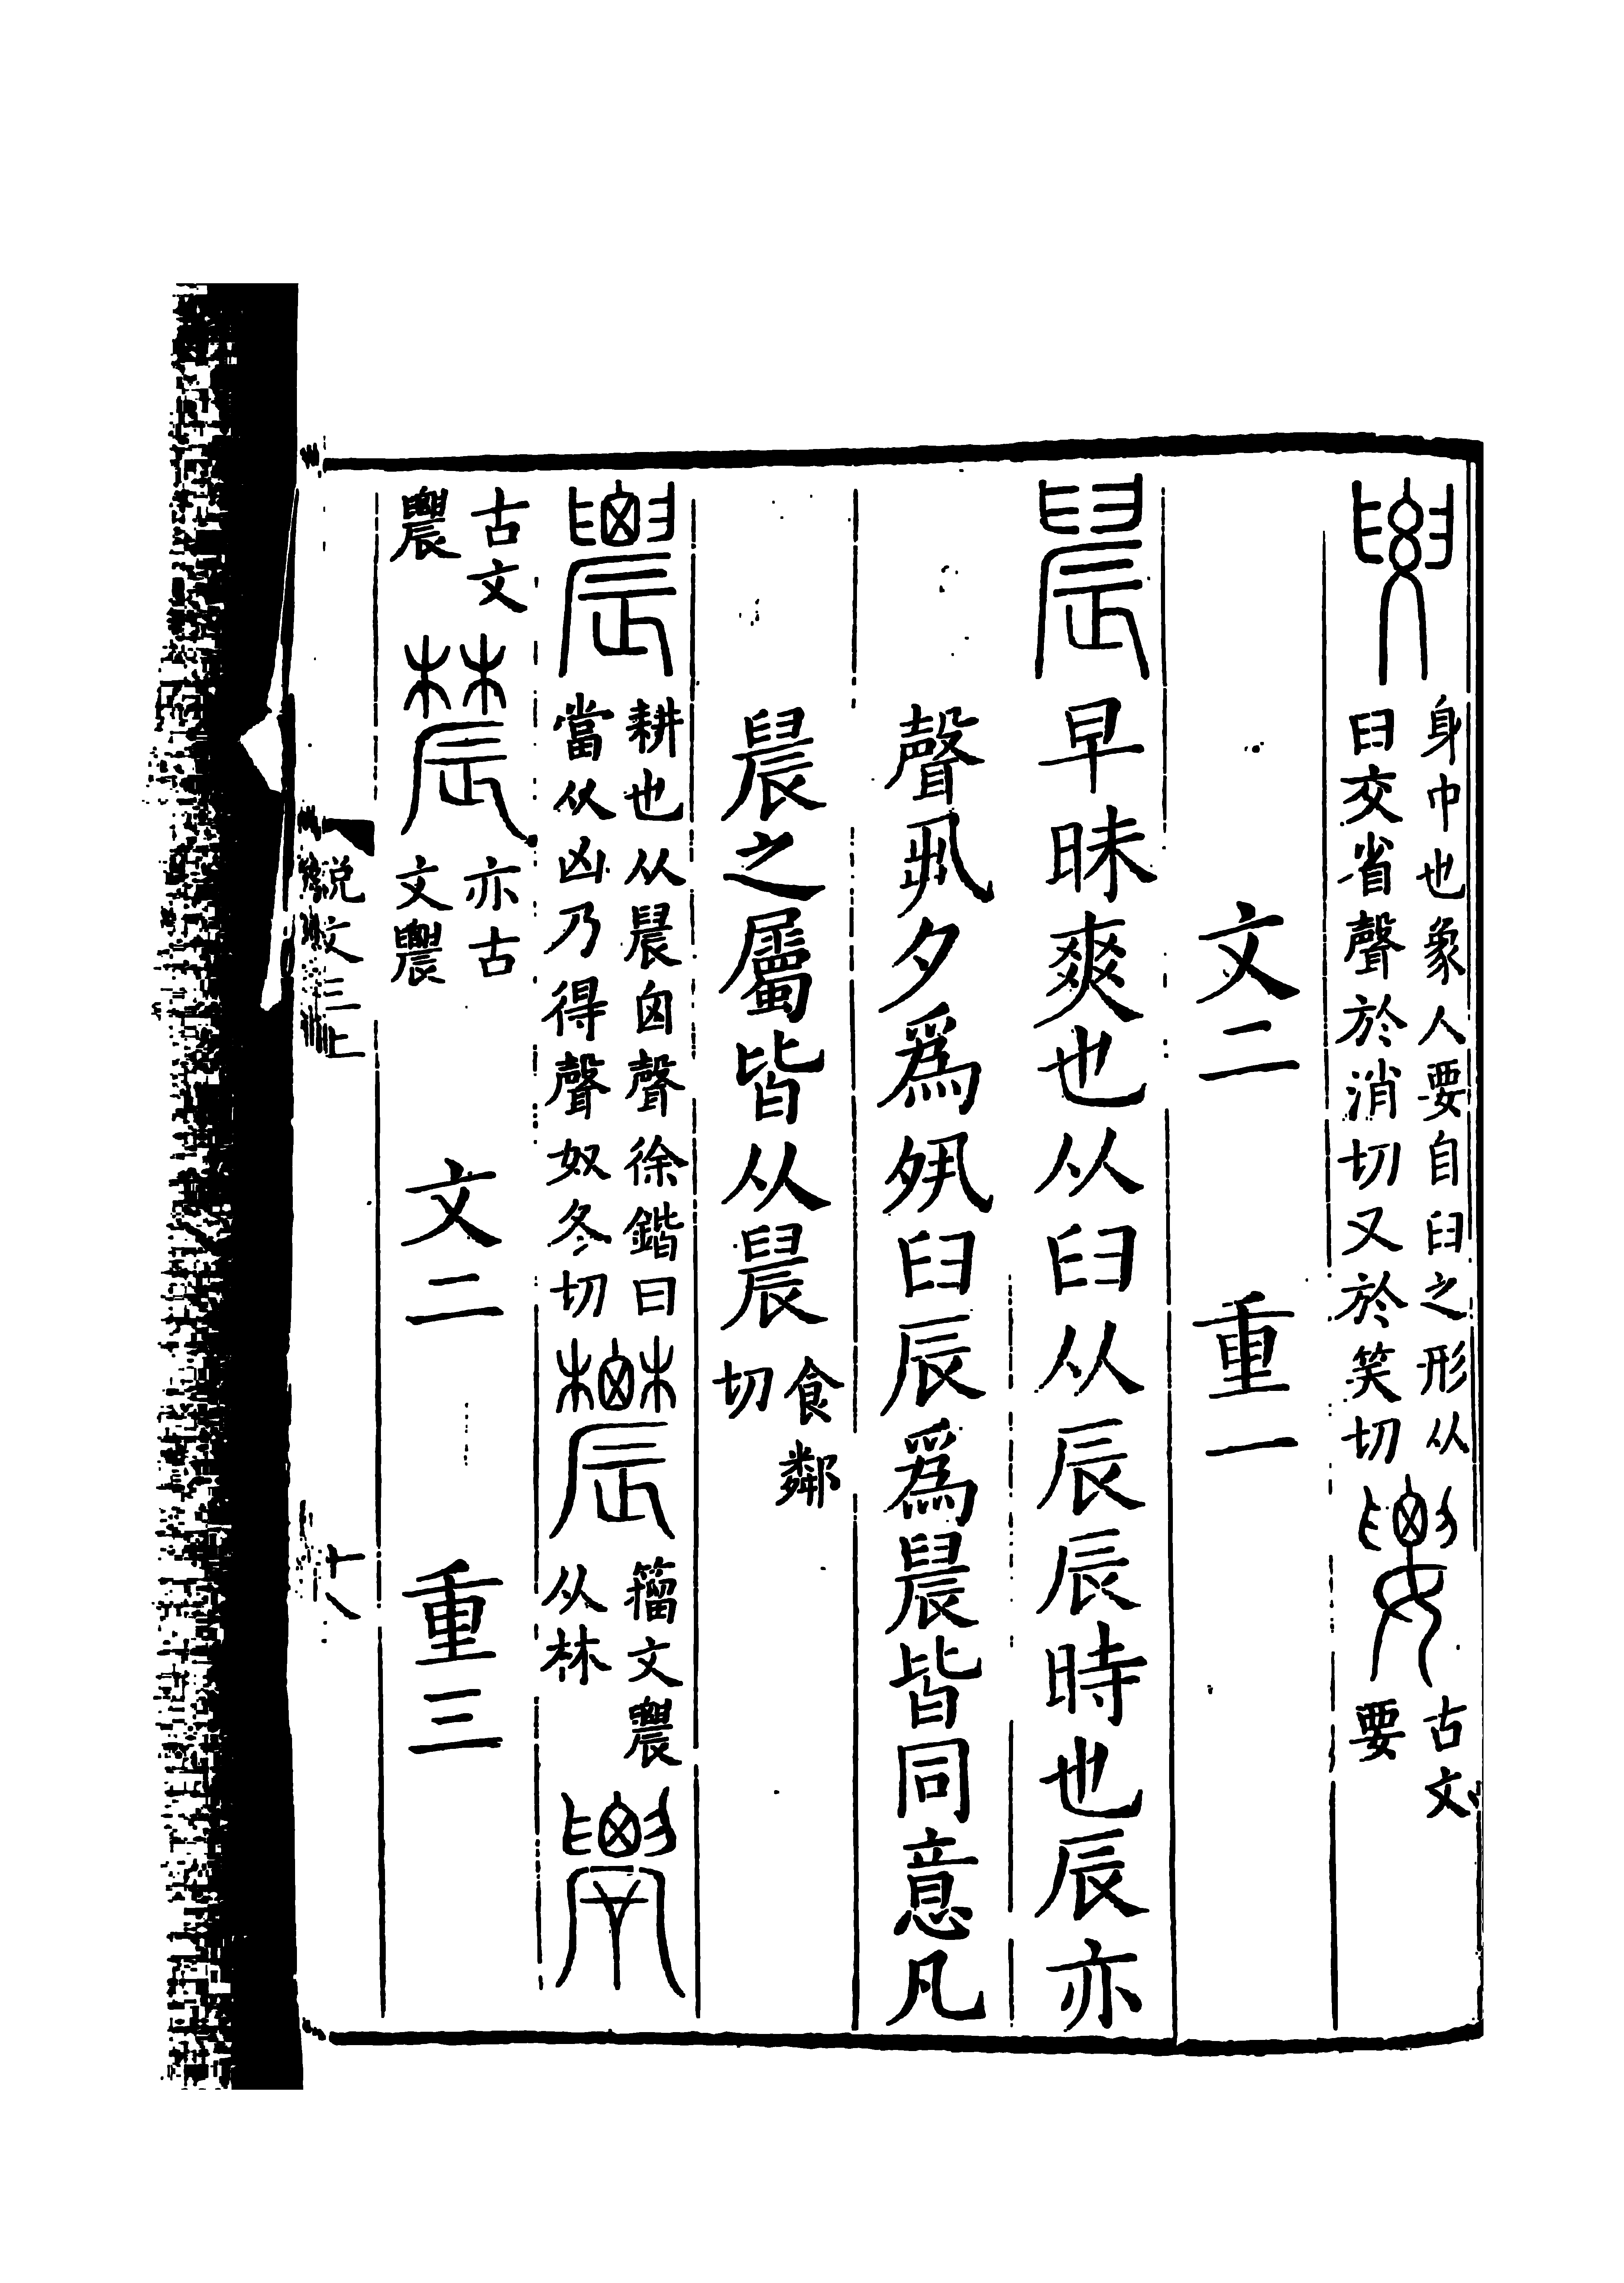 𦥼 身中也象人要自𦥑之形从𦥑交省聲於消切又於笑切 𡢗 古文要
文二 重一
晨 早昧爽也从𦥑从辰辰時也辰亦
聲丮夕爲𡖊𦥑辰爲晨皆同意凡
晨之屬皆从晨 食鄰切
農 耕也从晨囟聲徐鍇曰當从凶乃得聲奴冬切 𦦥 籒文農从林
古文農 𣊽 亦古文農 文二 重三
説文三上 十八